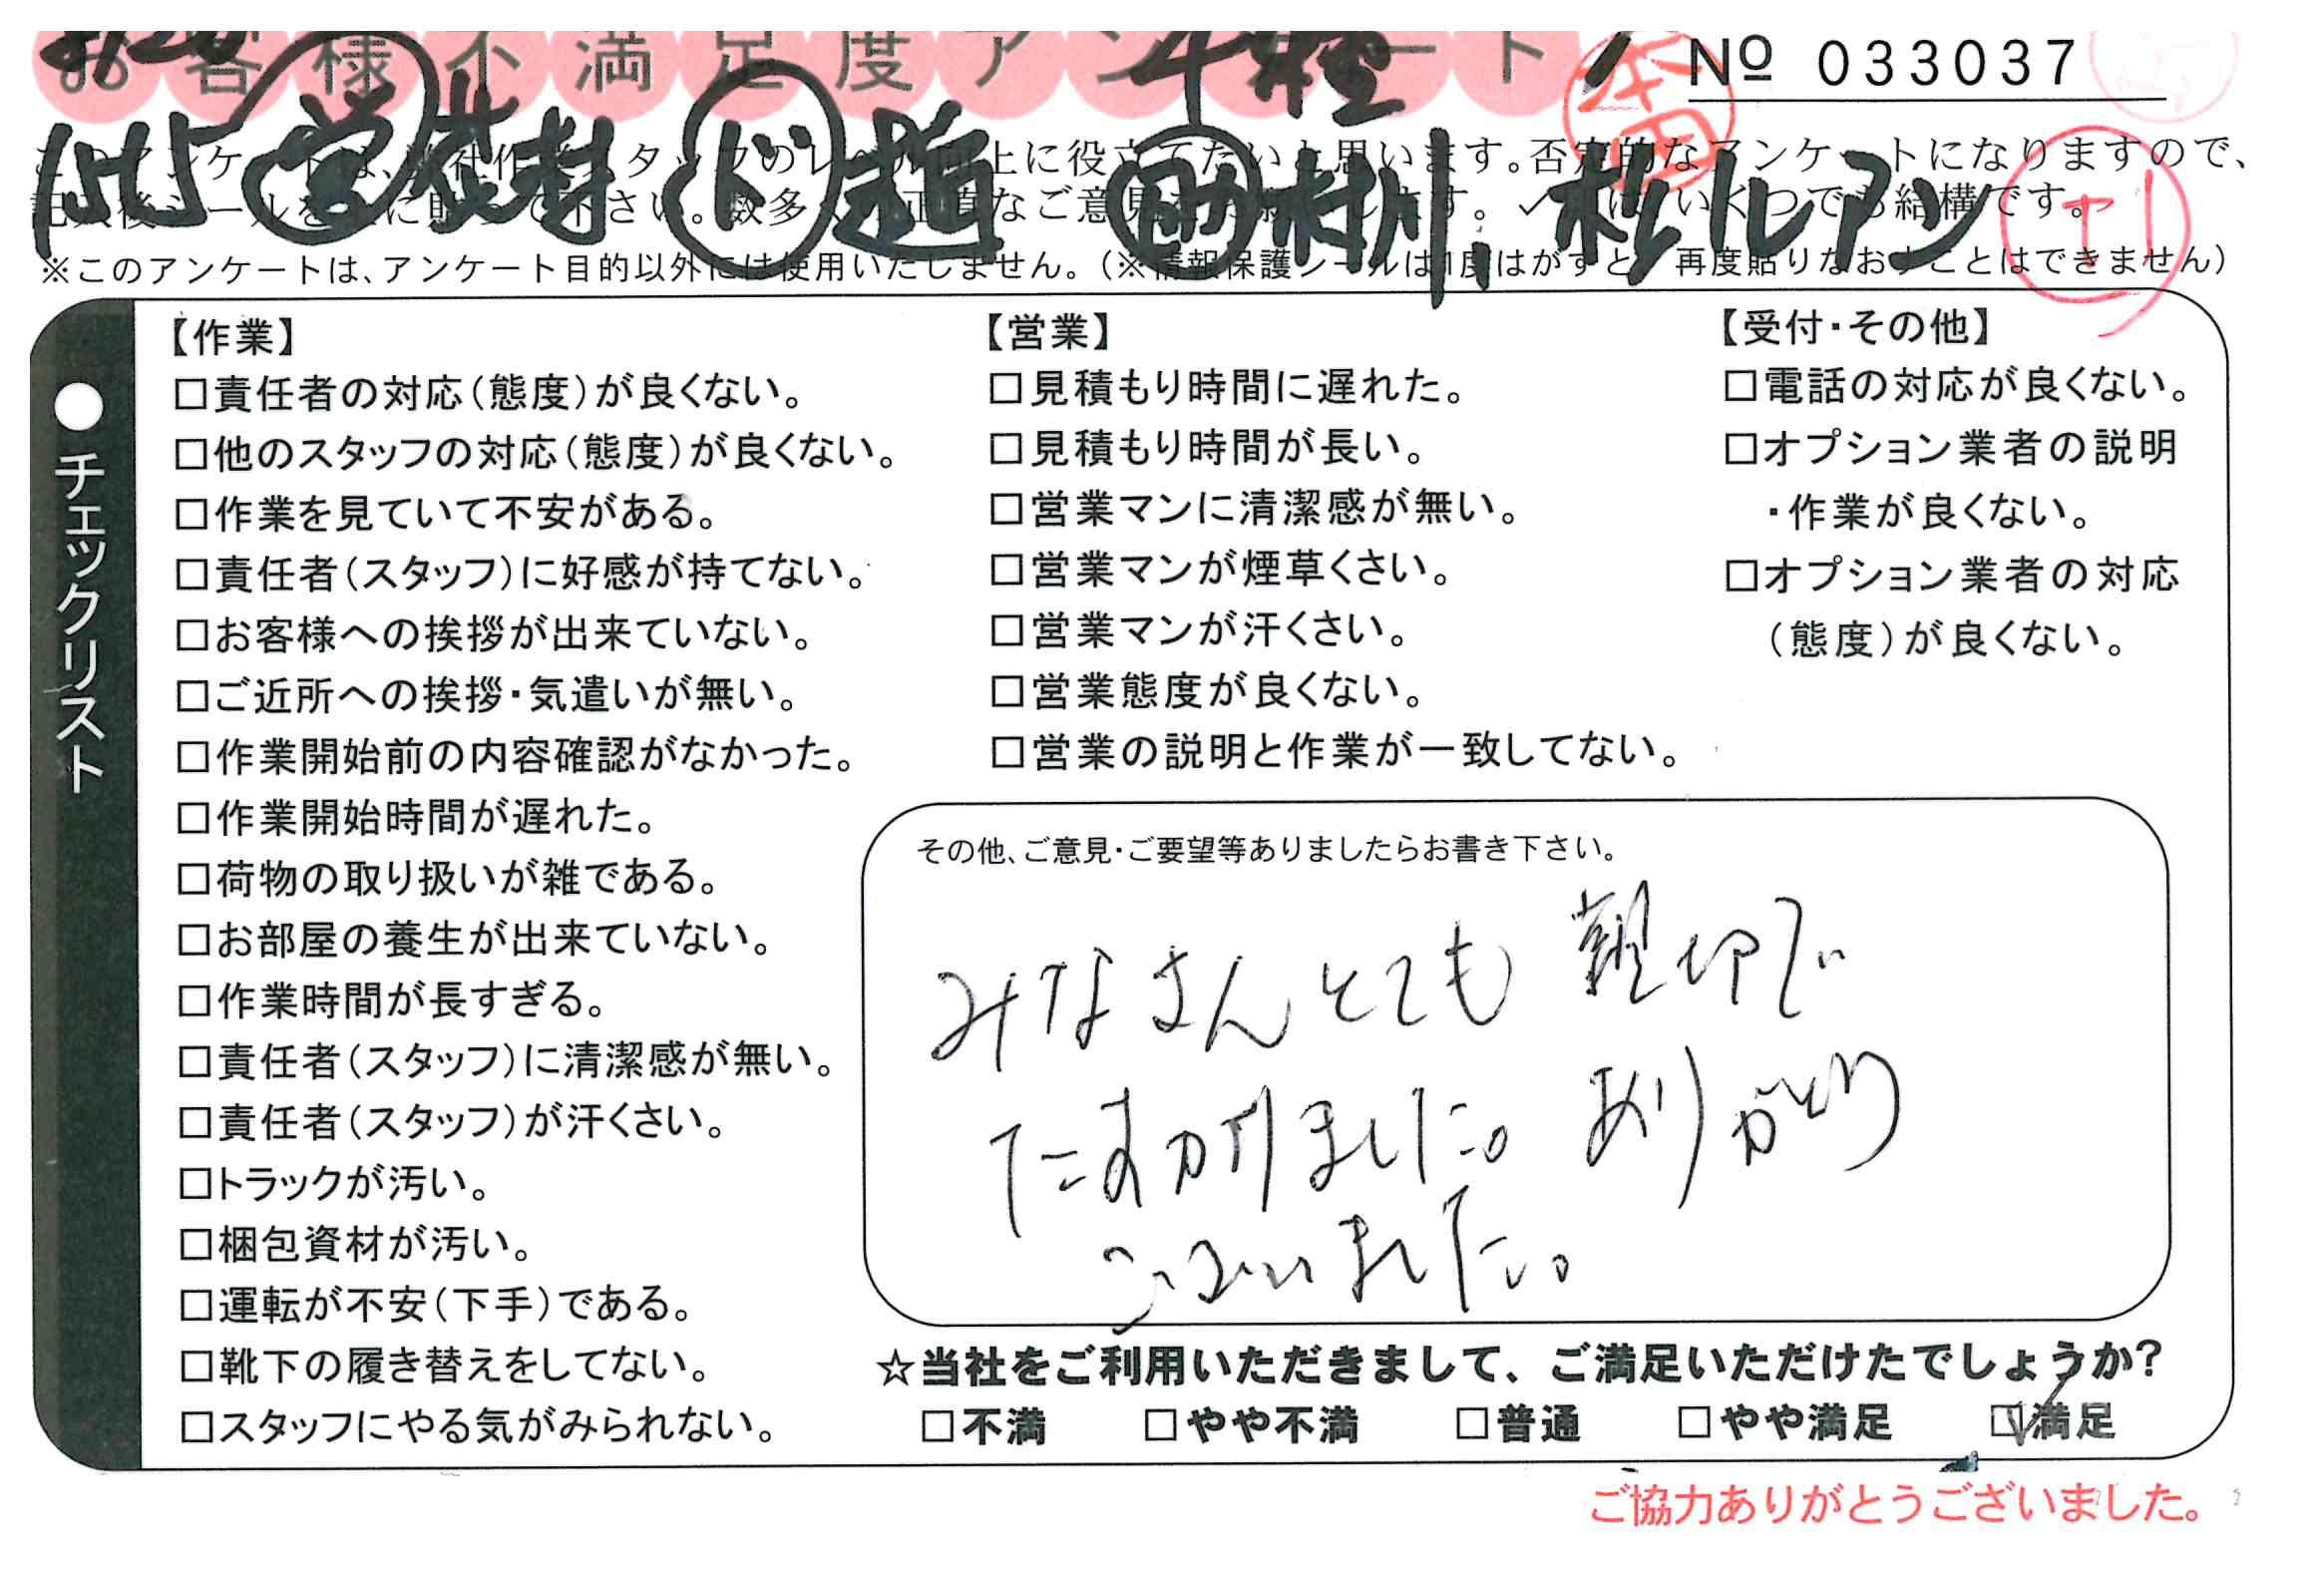 お客様不満足度アンケート
No 033037
このアンケートは、当社作業スタッフのレベル向上に役立てたいと思います。否定的なアンケートになりますので、
※このアンケートは、アンケート目的以外には使用いたしません。（※情報保護シールは1度はがすと、再度貼りなおすことはできません）
●チェックリスト
【作業】
□責任者の対応（態度）が良くない。
□他のスタッフの対応（態度）が良くない。
□作業を見ていて不安がある。
□責任者（スタッフ）に好感が持てない。
□お客様への挨拶が出来ていない。
□ご近所への挨拶・気遣いが無い。
□作業開始前の内容確認がなかった。
□作業開始時間が遅れた。
□荷物の取り扱いが雑である。
□お部屋の養生が出来ていない。
□作業時間が長すぎる。
□責任者（スタッフ）に清潔感が無い。
□責任者（スタッフ）が汗くさい。
□トラックが汚い。
□梱包資材が汚い。
□運転が不安（下手）である。
□靴下の履き替えをしてない。
□スタッフにやる気がみられない。
【営業】
□見積もり時間に遅れた。
□見積もり時間が長い。
□営業マンに清潔感が無い。
□営業マンが煙草くさい。
□営業マンが汗くさい。
□営業態度が良くない。
□営業の説明と作業が一致してない。
【受付・その他】
□電話の対応が良くない。
□オプション業者の説明
・作業が良くない。
□オプション業者の対応
（態度）が良くない。
その他、ご意見・ご要望等ありましたらお書き下さい。
みなさんとても親切で
たすかりました。ありがとう
ございました。
☆当社をご利用いただきまして、ご満足いただけたでしょうか?
□不満 □やや不満 □普通 □やや満足 ☑満足
ご協力ありがとうございました。